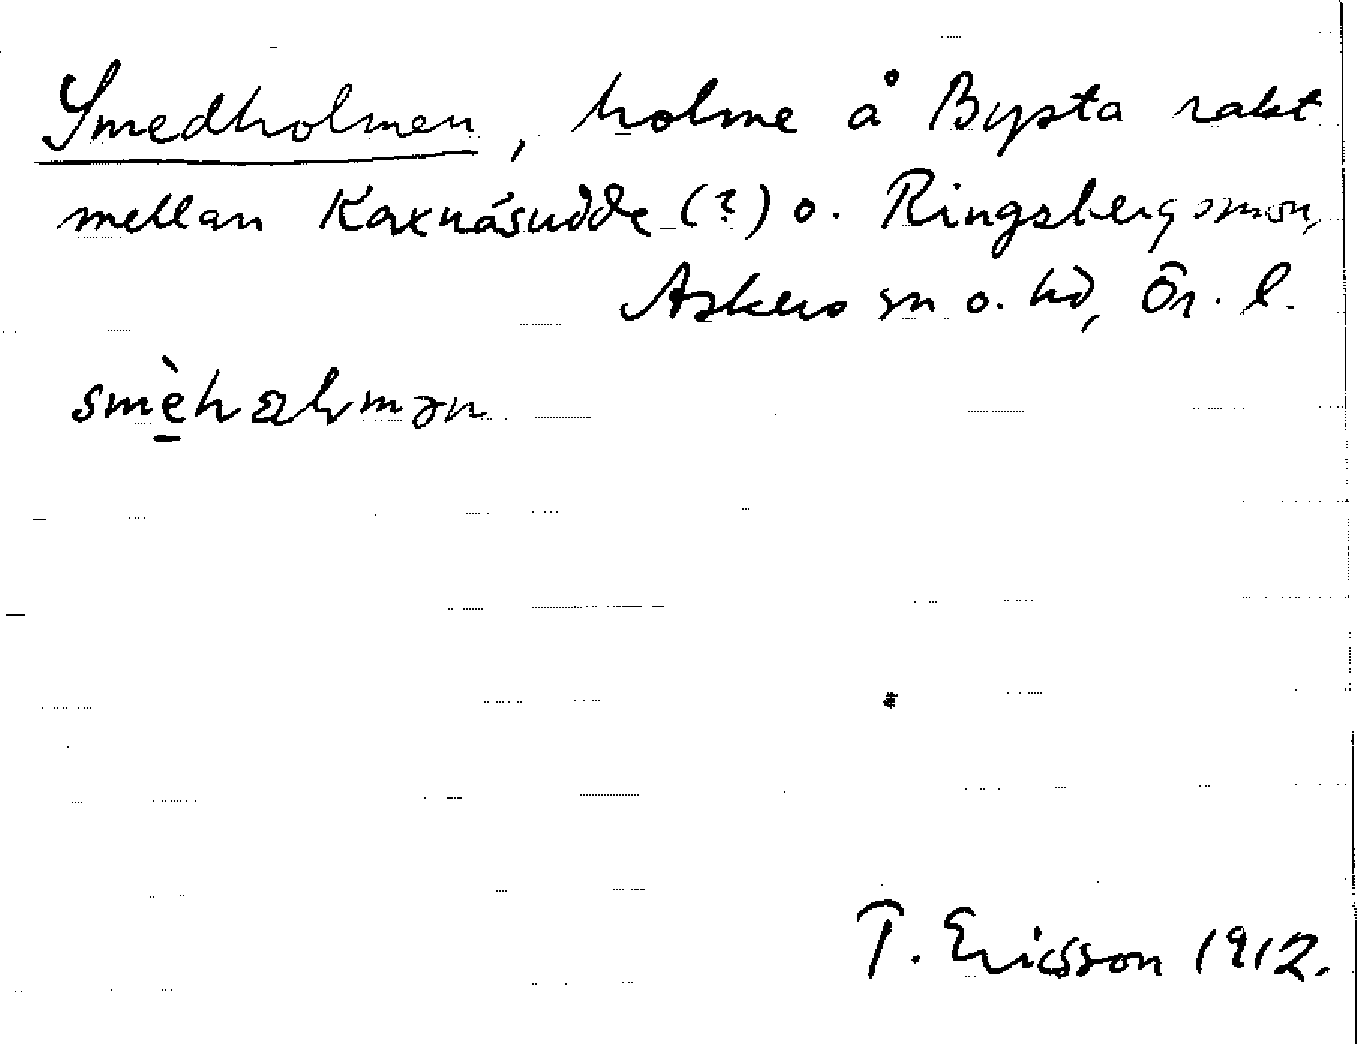 Smedholmen, holme å Bysta rakt
mellan Kaxnäsudde (?) o. Ringsbergsmon,
Askers sn o. hd, Ör. l.
T. Ericsson 1912.